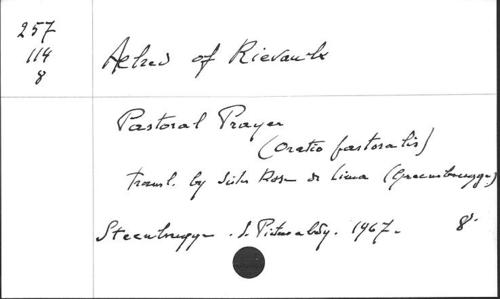 257
114
8
Aelred of Rievaulx
Pastoral Prayer
(Oratio pastoralis)
transl. by Sister Rose de Lima (Groenebrugge)
Steenbrugge. S. Pietersabdij. 1967. 8°